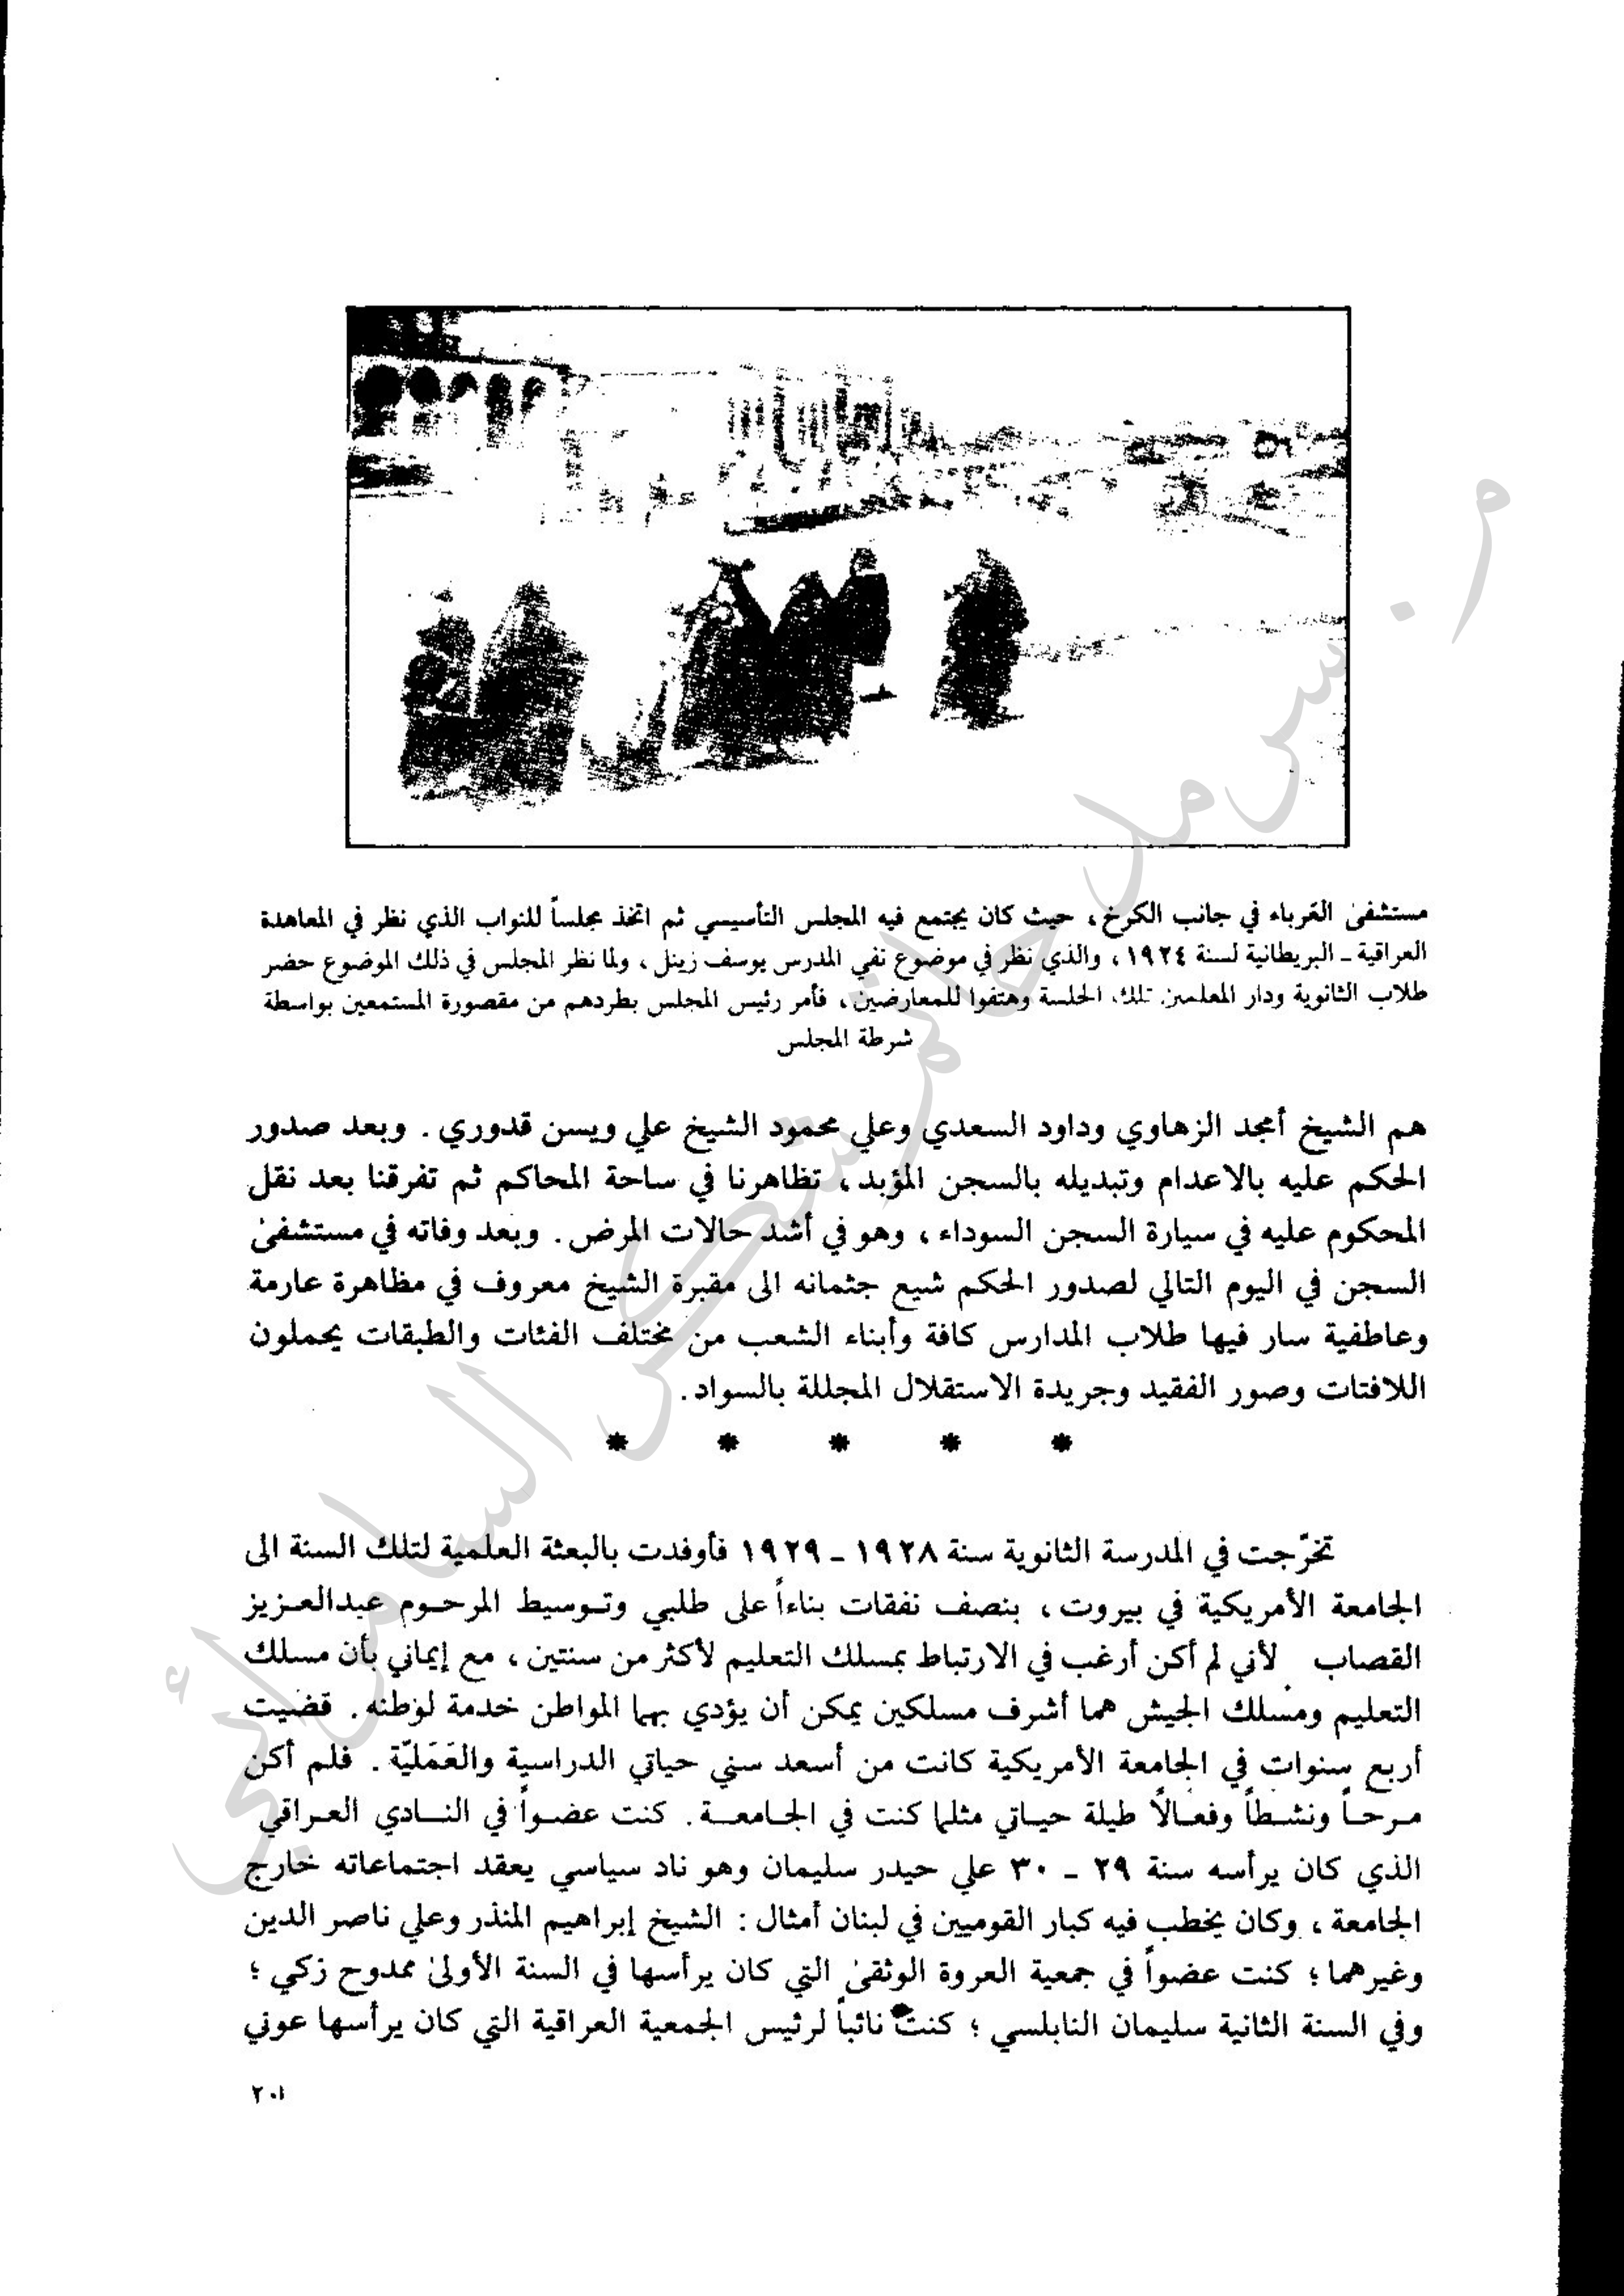 مستشفى الغرباء في جانب الكرخ، حيث كان يجتمع فيه المجلس التأسيسي ثم اتخذ مجلساً للنواب الذي نظر في المعاهدة
العراقية - البريطانية لسنة ١٩٢٤، والذي نظر في موضوع نفي المدرس يوسف زينل، ولما نظر المجلس في ذلك الموضوع حضر
طلاب الثانوية ودار المعلمين تلك الجلسة وهتفوا للمعارضين، فأمر رئيس المجلس بطردهم من مقصورة المستمعين بواسطة
شرطة المجلس
هم الشيخ أمجد الزهاوي وداود السعدي وعلي محمود الشيخ علي ويسن قدوري. وبعد صدور
الحكم عليه بالاعدام وتبديله بالسجن المؤبد، تظاهرنا في ساحة المحاكم ثم تفرقنا بعد نقل
المحكوم عليه في سيارة السجن السوداء، وهو في أشد حالات المرض. وبعد وفاته في مستشفى
السجن في اليوم التالي لصدور الحكم شيع جثمانه الى مقبرة الشيخ معروف في مظاهرة عارمة
وعاطفية سار فيها طلاب المدارس كافة وأبناء الشعب من مختلف الفئات والطبقات يحملون
اللافتات وصور الفقيد وجريدة الاستقلال المجللة بالسواد.
* * * * *
تخرّجت في المدرسة الثانوية سنة ١٩٢٨ - ١٩٢٩ فأوفدت بالبعثة العلمية لتلك السنة الى
الجامعة الأمريكية في بيروت، بنصف نفقات بناءاً على طلبي وتوسيط المرحوم عبدالعزيز
القصاب لأني لم أكن أرغب في الارتباط بمسلك التعليم لأكثر من سنتين، مع إيماني بأن مسلك
التعليم ومسلك الجيش هما أشرف مسلكين يمكن أن يؤدي بهما المواطن خدمة لوطنه. قضيت
أربع سنوات في الجامعة الأمريكية كانت من أسعد سني حياتي الدراسية والعَمَليّة. فلم أكن
مرحاً ونشطاً وفعالاً طيلة حياتي مثلما كنت في الجامعة. كنت عضواً في النادي العراقي
الذي كان يرأسه سنة ٢٩ - ٣٠ علي حيدر سليمان وهو ناد سياسي يعقد اجتماعاته خارج
الجامعة، وكان يخطب فيه كبار القوميين في لبنان أمثال: الشيخ إبراهيم المنذر وعلي ناصر الدين
وغيرهما؛ كنت عضواً في جمعية العروة الوثقى التي كان يرأسها في السنة الأولى ممدوح زكي؛
وفي السنة الثانية سليمان النابلسي؛ كنت نائباً لرئيس الجمعية العراقية التي كان يرأسها عوني
٢٠١